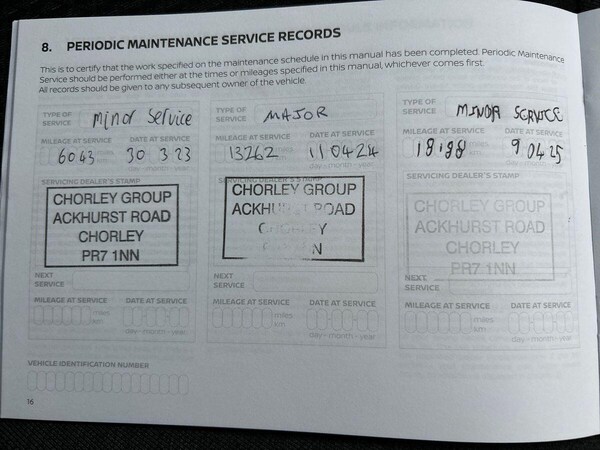 8. PERIODIC MAINTENANCE SERVICE RECORDS
This is to certify that the work specified on the maintenance schedule in this manual has been completed. Periodic Maintenance
Service should be performed either at the times or mileages specified in this manual, whichever comes first.
All records should be given to any subsequent owner of the vehicle.
TYPE OF SERVICE minor Service
MILEAGE AT SERVICE DATE AT SERVICE
6043 30 3 23
SERVICING DEALER'S STAMP
CHORLEY GROUP
ACKHURST ROAD
CHORLEY
PR7 1NN
NEXT SERVICE
MILEAGE AT SERVICE DATE AT SERVICE
miles
km
day - month - year
TYPE OF SERVICE MAJOR
MILEAGE AT SERVICE DATE AT SERVICE
13262 11 04 24
day - month - year
SERVICING DEALER'S STAMP
CHORLEY GROUP
ROAD
NEXT SERVICE
MILEAGE AT SERVICE DATE AT SERVICE
miles
km
day - month - year
TYPE OF SERVICE MINOR SERVICE
MILEAGE AT SERVICE DATE AT SERVICE
9 04 25
day - month - year
SERVICING DEALER'S STAMP
CHORLEY GROUP
ACKHURST ROAD
CHORLEY
PR7 1NN
NEXT SERVICE
MILEAGE AT SERVICE DATE AT SERVICE
miles
km
day - month - year
VEHICLE IDENTIFICATION NUMBER
16